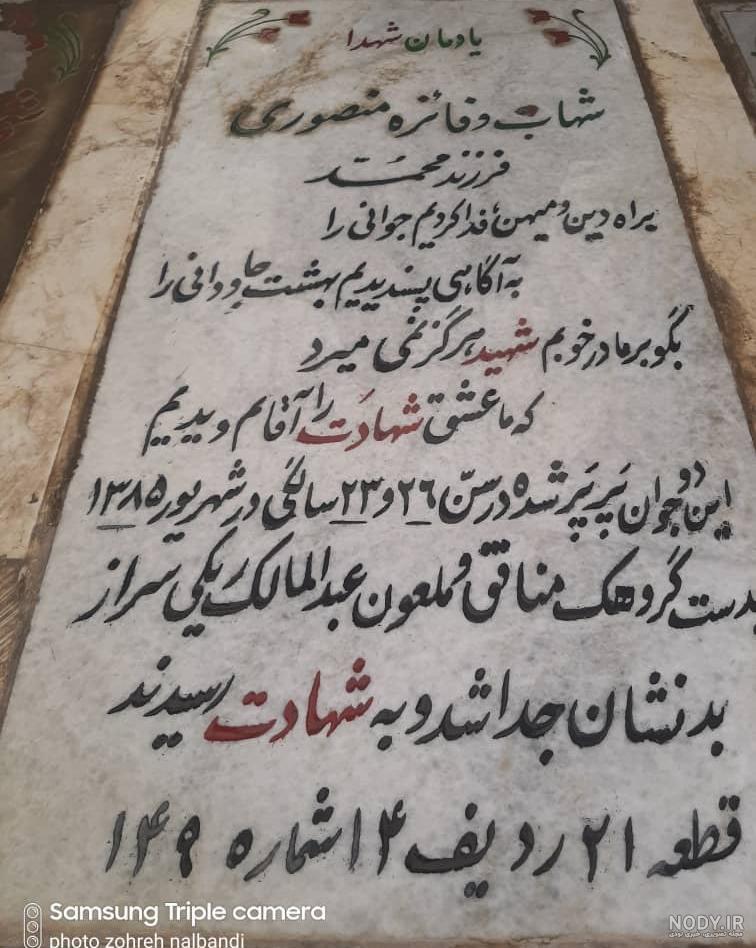 یادمان شهدا
شهاب و فائزه منصوری
فرزند محمّد
براه دین و میهن، فدا کردیم جوانی را
به آگاهی پسندیدیم بهشت جاودانی را
بگو بر مادر خوبم شهید هرگز نمی میرد
که ما عشق شهادت را آقام و بدیم
این دو جوان پَرپَر شده در سنّ ۲۶ و ۲۳ سالگی در شهریور ۱۳۸۵
بدست گروهک منافق و ملعون عبدالمالک ریگی سر از
بدنشان جدا شد و به شهادت رسیدند
قطعه ۲۱ ردیف ۱۴ شماره ۱۴۹
Samsung Triple camera
photo zohreh nalbandi
NODY.IR